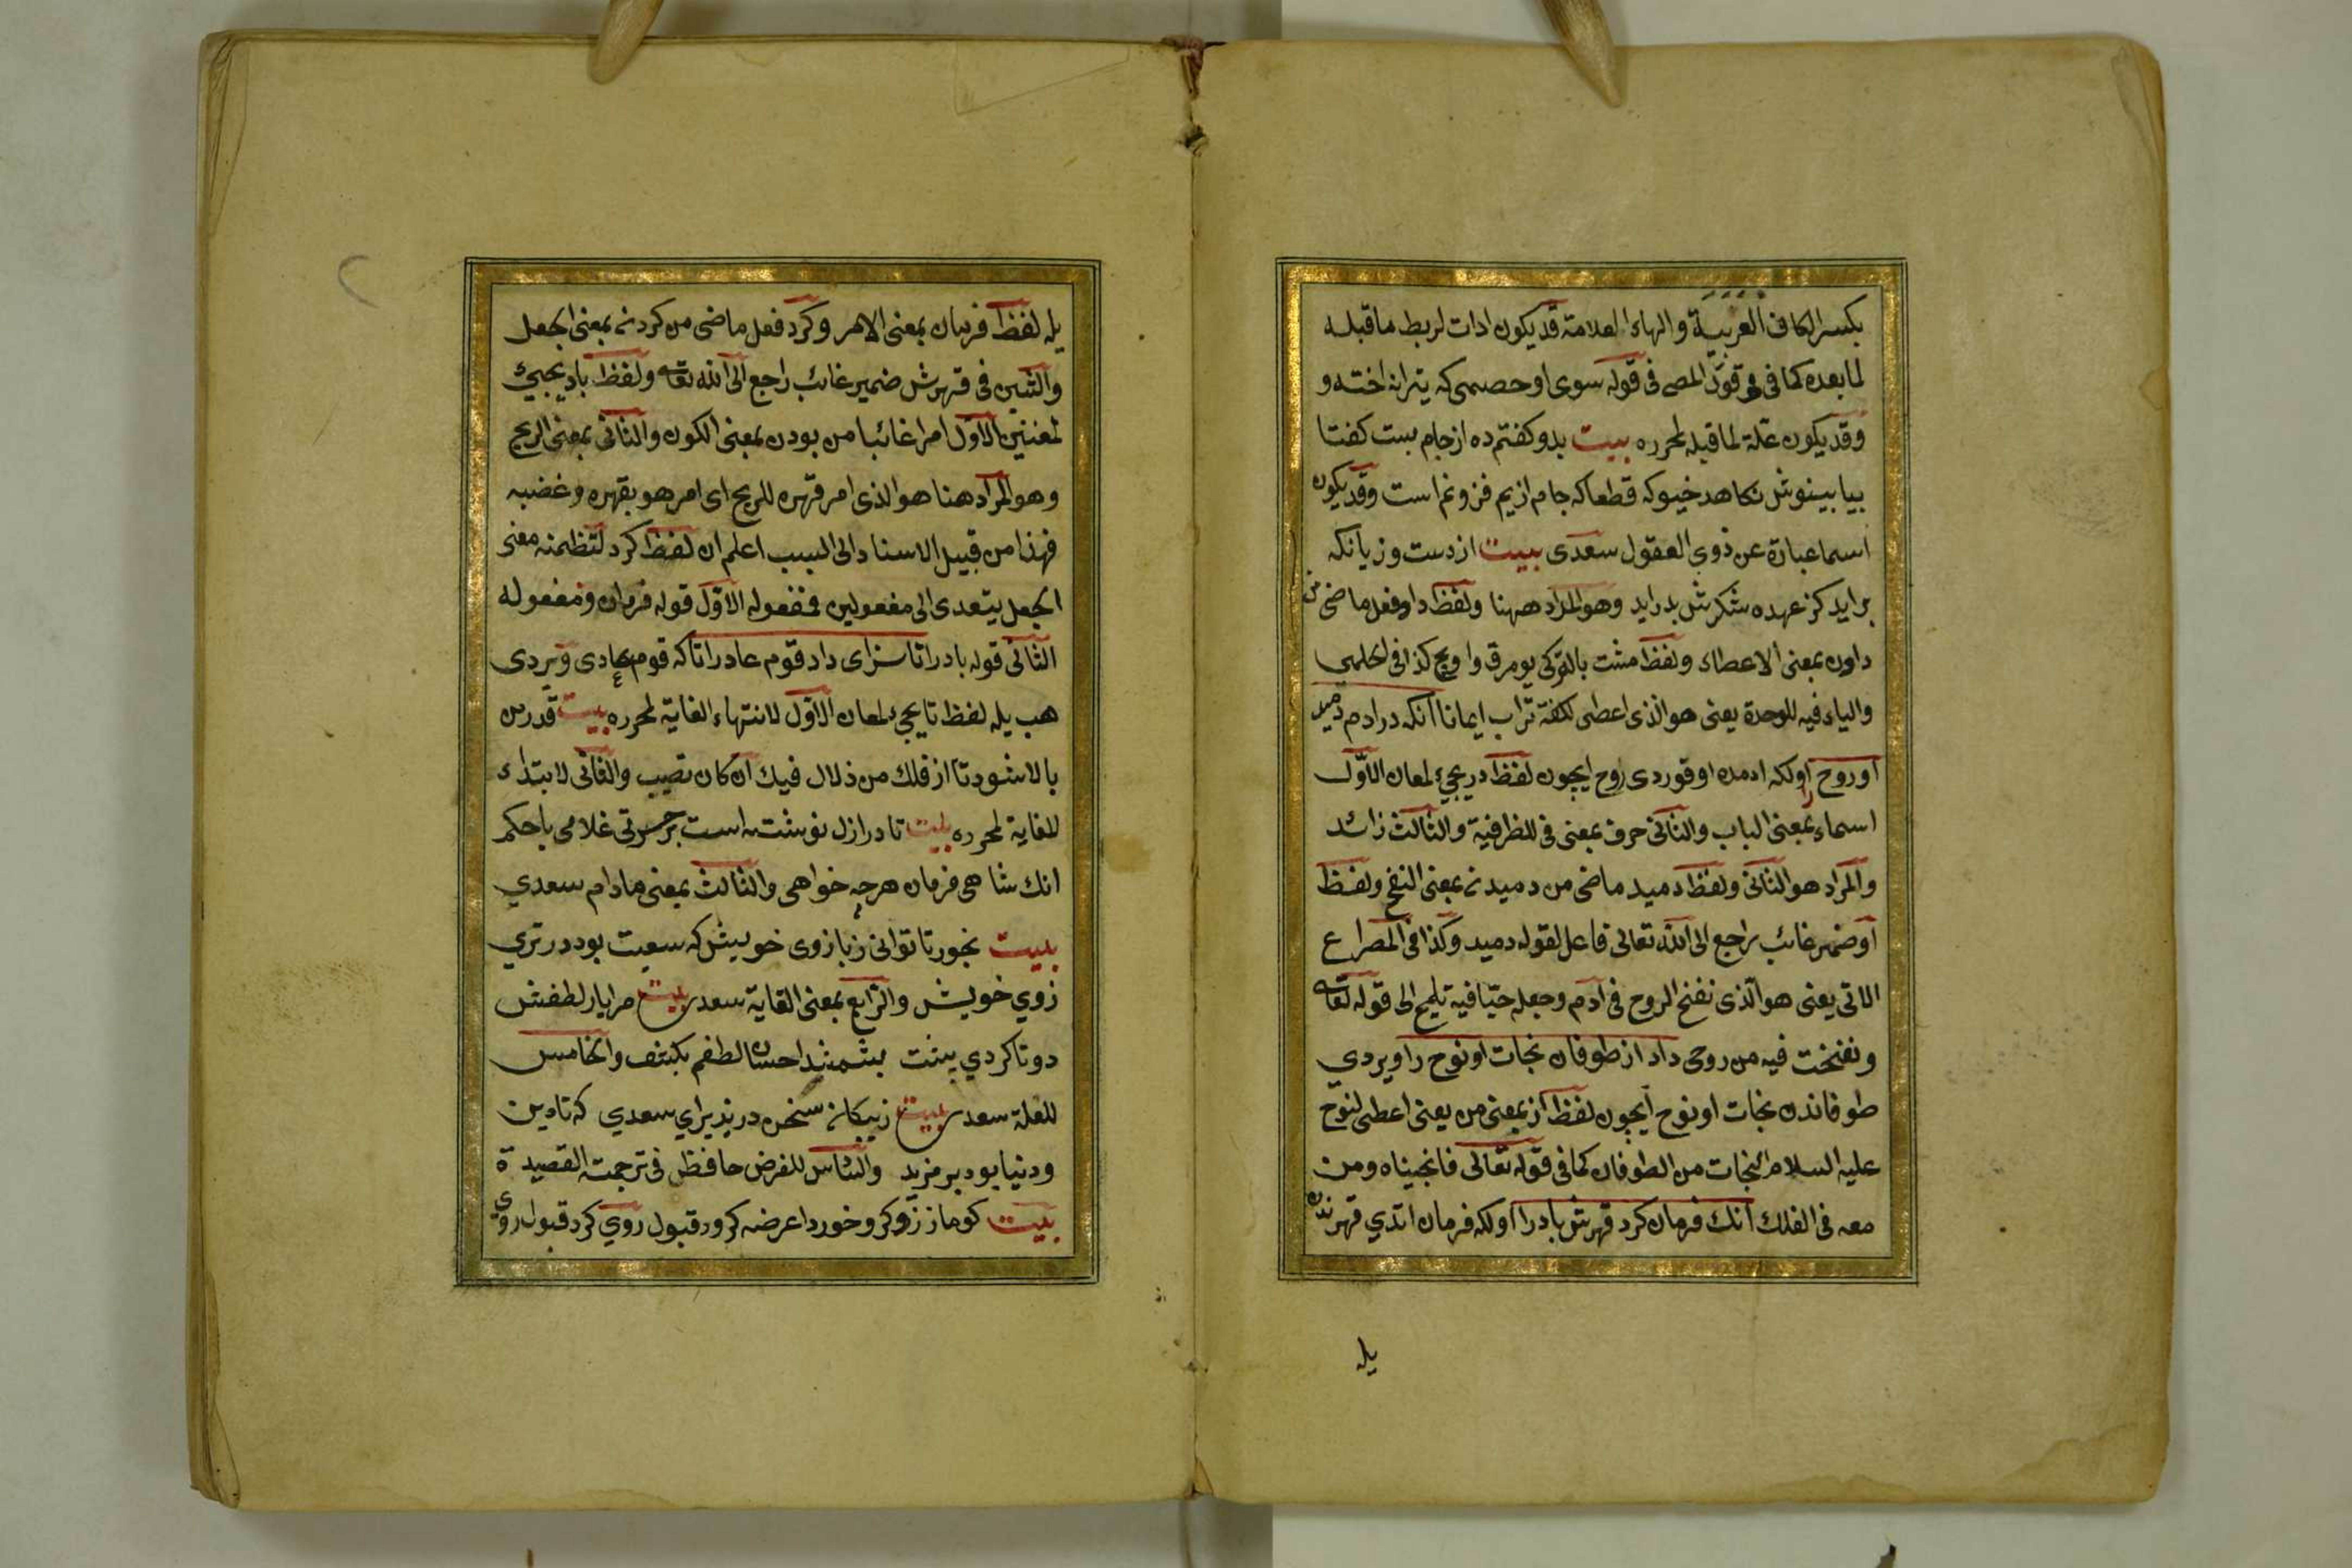 بكسر الكاف العربية والهاء العلامة قد يكون ادات لربط ما قبله
لما بعده كما فى قول المص فى قوله سوى او حصمى كه يترانداخته و
وقد يكون علّة لما قبله لمحرره بيت بدو كفتم ده از جام بست كفتا
بيا بينوش نكاهد خيوكه قطعا كه جام ازيم فزونم است وقد يكون
اسما عبارة عن ذوى العقول سعدى بيت از دست وزبانكه
برايد كز عهده شكرش بدرايد وهو المراد ههنا ولفظ داد فعل ماضى من
دادن بمعنى الاعطاء ولفظ مشت بالتركى يومرق واويج كذا فى الحلمى
والياء فيه للوحدة يعنى هو الذى اعطى لكفة تراب ايمانا آنكه در ادم دميد
او روح را اولكه ادمده اوفوردى روح ايچون لفظ در يجئ لمعان الاوّل
اسماء بمعنى الباب والثانى حرف بمعنى فى للظرفية والثالث زائد
والمراد هو الثانى ولفظ دميد ماضى من دميدن بمعنى النفخ ولفظ
او ضمير غائب راجع الى الله تعالى فاعل لقوله دميد وكذا فى المصراع
الاتى يعنى هو الّذى نفخ الروح فى آدم وجعله حيّا فيه تلميح الى قوله تعالى
ونفخت فيه من روحى داد از طوفان نجات او نوح را ويردى
طوفاندن نجات او نوح ايچون لفظ از بمعنى من يعنى اعطى لنوح
عليه السلام النجات من الطوفان كما فى قوله تعالى فانجيناه ومن
معه فى الفلك آنك فرمان كرد قهرش باد را اولكه فرمان اتدي قهرندن
يله
يله لفظ فرمان بمعنى الامر وكرد فعل ماضى من كردن بمعنى الجعل
والشين فى قهرش ضمير غائب راجع الى الله تعالى ولفظ باد يجيئ
لمعنيين الاوّل امرا غائبا من بودن بمعنى الكون والثانى بمعنى الريح
وهو المراد هنا هو الذى امر قهره للريح اى امر هو بقهره وغضبه
فهذا من قبيل الاسناد الى السبب اعلم ان لفظ كرد لتظمنه معنى
الجعل يتعدى الى مفعولين فمفعوله الاوّل قوله فرمان ومفعوله
الثانى قوله باد را تا سزاى داد قوم عاد را تاكه قوم عادى ويردى
هب يله لفظ تا يجئ لمعان الاوّل لانتهاء الغاية لمحرره بيت قدر من
بالا شود تا از فلك من ذلال فيك آن كان نصيب والثانى لابتداء
للغاية لمحرره بيت تا در ازل نوشت است بر سرتى غلامى با حكم
انك شاهى فرمان هرچه خواهى والثالث بمعنى مادام سعدي
بيت نجور تا توانى زبازوى خويش كه سعيت بود در ترازوي
زوي خويش والرّابع بمعنى الغاية سعدى بيت مرا يار لطفش
دوتا كردي پشت بشمشير احسان لطفم بكشت والخامس
للعلة سعدى بيت زبيكانه سخن درپذيراي سعدي كه تا دين
ودنيا بود بر مزيد والسّادس للفرض حافظ فى ترجمت القصيدة
بيت كوما ززوكر وخورداعرضه كرور قبول روي كرد قبول روى